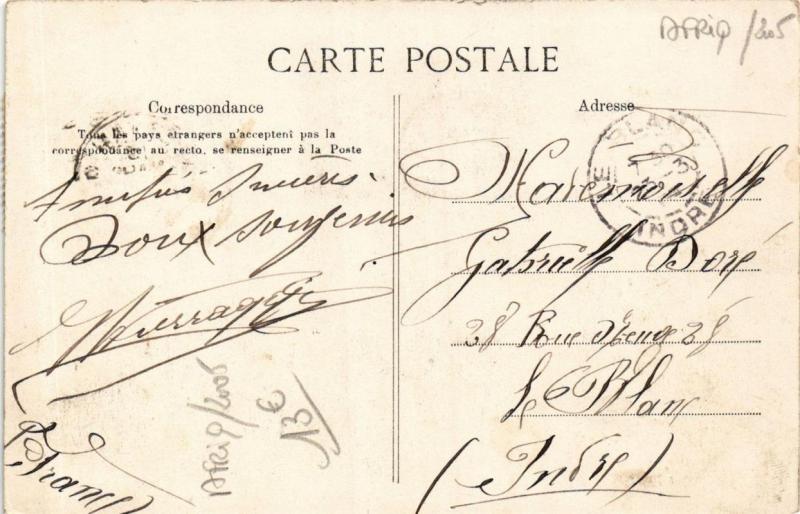 AFRIQ/2005
CARTE POSTALE
Correspondance
Tous les pays étrangers n'acceptent pas la
correspondance au recto, se renseigner à la Poste
Adresse
LE BLANC
INDRE
Amitiés Sincères.
Doux souvenirs
Mademoiselle
Gabrielle Doré
28 Rue 28
le Blanc
(Indre)
(France)
AFRIQ/2005
13€